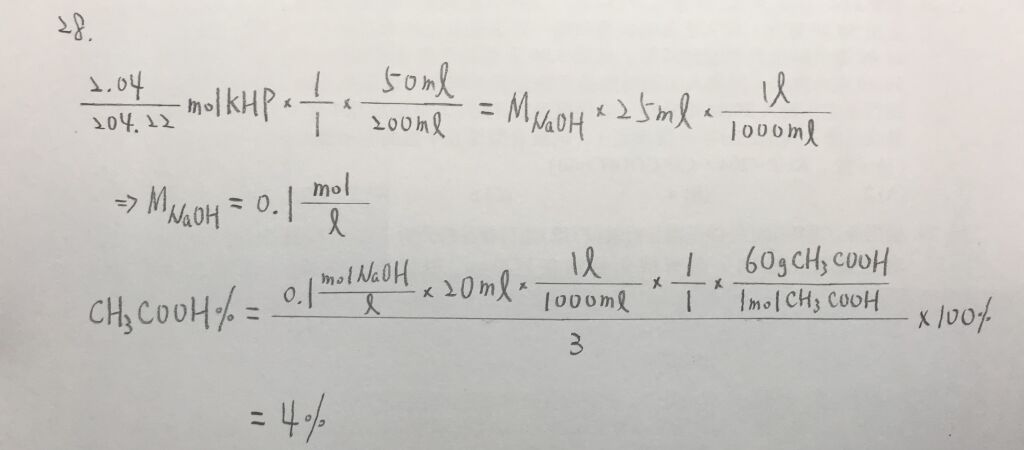 28.
2.04/204.22 mol KHP × 1/1 × 50ml/200ml = M_NaOH × 25ml × 1l/1000ml
⇒ M_NaOH = 0.1 mol/l
CH₃COOH% = (0.1 mol NaOH/l × 20ml × 1l/1000ml × 1/1 × 60g CH₃COOH/1mol CH₃COOH)/3 × 100%
= 4%